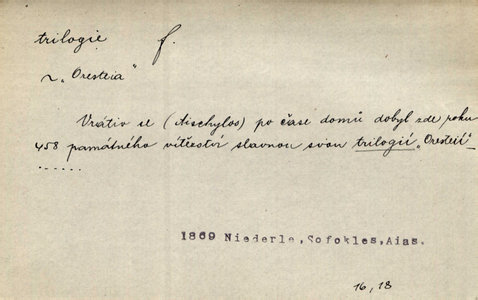 trilogie f.
~ „Oresteia“
Vrátiv se (Aischylos) po čase domů dobyl zde roku
458 památného vítězství slavnou svou trilogií „Oresteií“
......
1869 Niederle, Sofokles, Aias.
16, 18